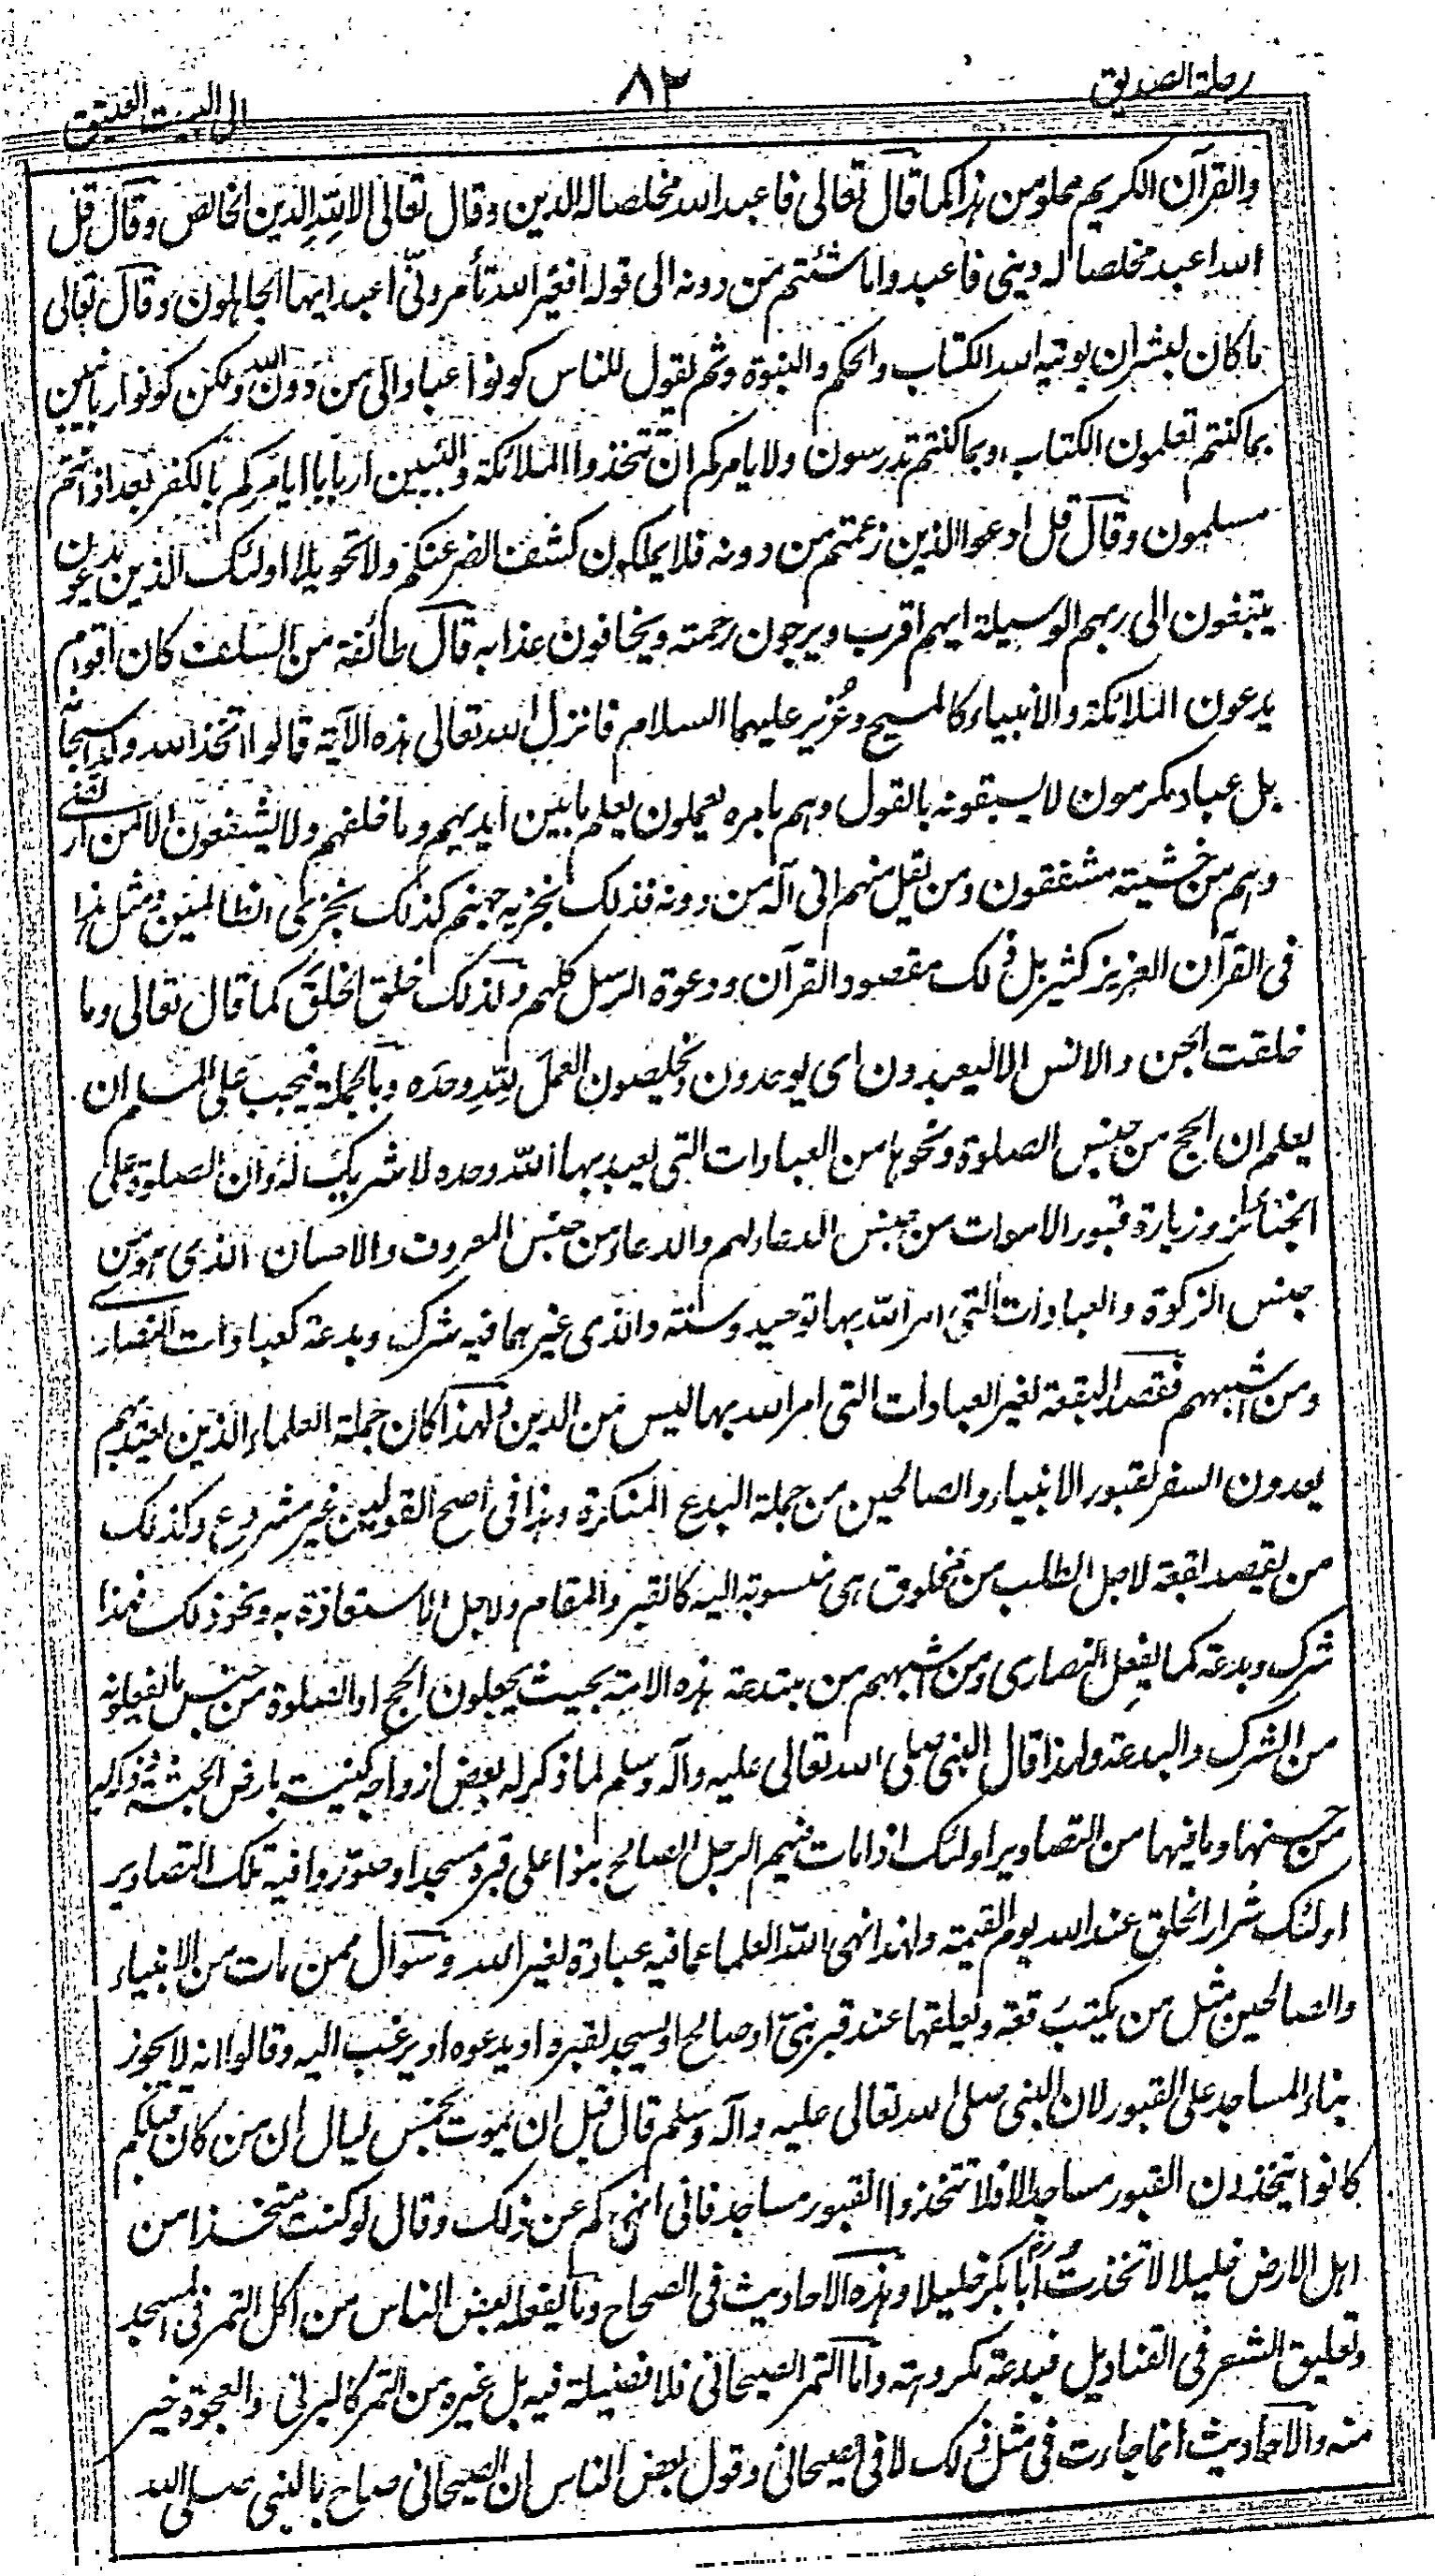 رحلة الصديق
٨٢
الى البيت العتيق
والقرآن الكريم مملو من هذا كما قال تعالى فاعبد الله مخلصا له الدين وقال تعالى الا لله الدين الخالص وقال قل
الله اعبد مخلصا له ديني فاعبدوا ما شئتم من دونه الى قوله افغير الله تأمرونّي اعبد ايها الجاهلون وقال تعالى
ما كان لبشر ان يوتيه الله الكتاب والحكم والنبوة وثم يقول للناس كونوا عبادا لى من دون الله ولكن كونوا ربانيين
بما كنتم تعلمون الكتاب وبما كنتم تدرسون ولا يامركم ان تتخذوا الملائكة والنبيين اربابا ايامركم بالكفر بعد اذ انتم
مسلمون وقال قل ادعوا الذين زعمتم من دونه فلا يملكون كشف الضر عنكم ولا تحويلا اولئك الذين يدعون
يبتغون الى ربهم الوسيلة ايهم اقرب ويرجون رحمته ويخافون عذابه قال طائفة من السلف كان اقوام
يدعون الملائكة والانبياء كالمسيح وعُزير عليهما السلام فانزل الله تعالى هذه الآية قالوا اتخذ الله ولدا سبحانه
بل عباد مكرمون لا يسبقونه بالقول وهم بامره يعملون يعلم ما بين ايديهم وما خلفهم ولا يشفعون الا لمن ارتضى
وهم من خشيته مشفقون ومن يقل منهم انى اله من دونه فذلك نجزيه جهنم كذلك نجزى الظالمين ومثل هذا
فى القرآن العزيز كثير بل ذلك مقصود القرآن ودعوة الرسل كلهم ولذلك خلق الخلق كما قال تعالى وما
خلقت الجن والانس الا ليعبدون اى يوحدون ويخلصون العمل لله وحده وبالجملة فيجب على المسلم ان
يعلم ان الحج من جنس الصلوة ونحوها من العبادات التى يعبد بها الله وحده لا شريك له وان الصلوة على
الجنائز وزيارة قبور الاموات من جنس الدعاء لهم والدعاء من جنس المعروف والاحسان الذى هو من
جنس الزكوة والعبادات التى امر الله بها توحيد وسنة والذى غيرهما فيه شرك وبدعة كعبادات النصارى
ومن اشبههم فقصد البقعة لغير العبادات التى امر الله بها ليس من الدين ولهذا كان جملة العلماء الذين يعتد بهم
يعدون السفر لقبور الانبياء والصالحين من جملة البدع المنكرة وهذا فى اصح القولين غير مشروع وكذلك
من يقصد بقعة لاجل الطلب من مخلوق هى منسوبة اليه كالقبر والمقام ولاجل الاستعاذة به ونحو ذلك فهذا
شرك وبدعة كما يفعل النصارى ومن اشبههم من مبتدعة هذه الامة بحيث يجعلون الحج او الصلوة من جنس ما يفعلونه
من الشرك والبدعة ولهذا قال النبى صلى الله تعالى عليه وآله وسلم لما ذكر له بعض ازواجه كنيسة بارض الحبشة وذكر له
من حسنها وما فيها من التصاوير اولئك اذا مات فيهم الرجل الصالح بنوا على قبره مسجدا وصوّروا فيه تلك التصاوير
اولئك شرار الخلق عند الله يوم القيمة ولهذا نهى الله العلما عما فيه عبادة لغير الله وسوال ممن مات من الانبياء
والصالحين مثل من يكتب رقعة ويعلقها عند قبر نبىّ او صالح او يسجد لقبره او يدعوه او يرغب اليه وقالوا انه لا يجوز
بناء المساجد على القبور لان النبى صلى الله تعالى عليه وآله وسلم قال قبل ان يموت بخمس ليال ان من كان قبلكم
كانوا يتخذون القبور مساجد الا فلا تتخذوا القبور مساجد فانى انهىكم عن ذلك وقال لو كنت متخذا من
اهل الارض خليلا لاتخذتُ ابا بكر خليلا وهذه الاحاديث فى الصحاح وما يفعله بعض الناس من اكل التمر فى المسجد
وتعليق الشعر فى القناديل فبدعة مكروهة واما التمر الصيحانى فلا فضيلة فيه بل غيره من التمر كالبرنى والعجوة خير
منه والاحاديث انما جاءت فى مثل ذلك لا فى الصيحانى وقول بعض الناس ان الصيحانى صاح بالنبى صلى الله